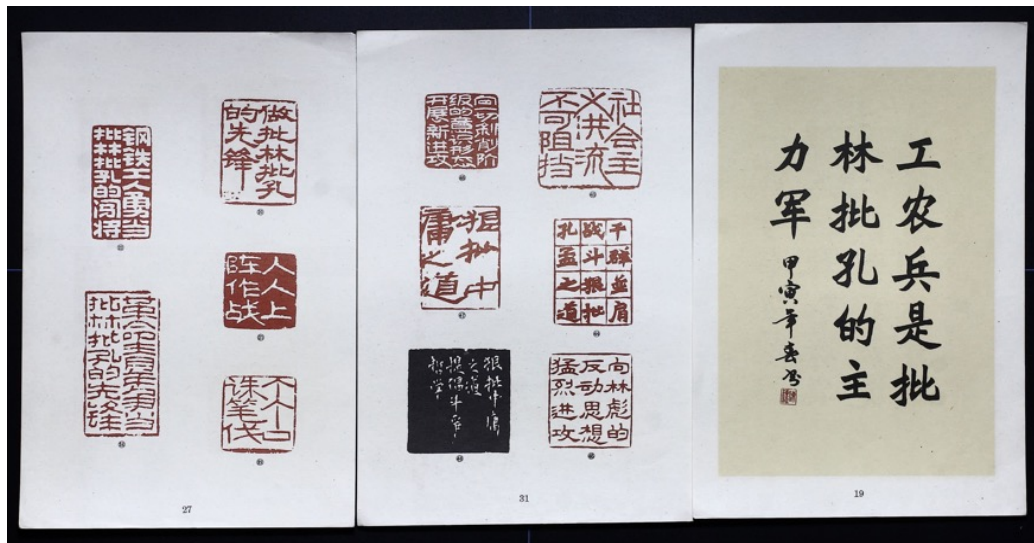 钢铁工人勇当
批林批孔的闯将
做批林批孔
的先锋
人人上
阵作战
批林批孔的先锋
个个口
诛笔伐
27
向一切剥削阶
级的意识形态
开展新进攻
社会主
义洪流
不可阻挡
狠批中
庸之道
干群並肩
战斗狠批
孔孟之道
狠批中庸
之道
提倡斗争
哲学
向林彪的
反动思想
猛烈进攻
31
工农兵是批
林批孔的主
力军
甲寅年春
19